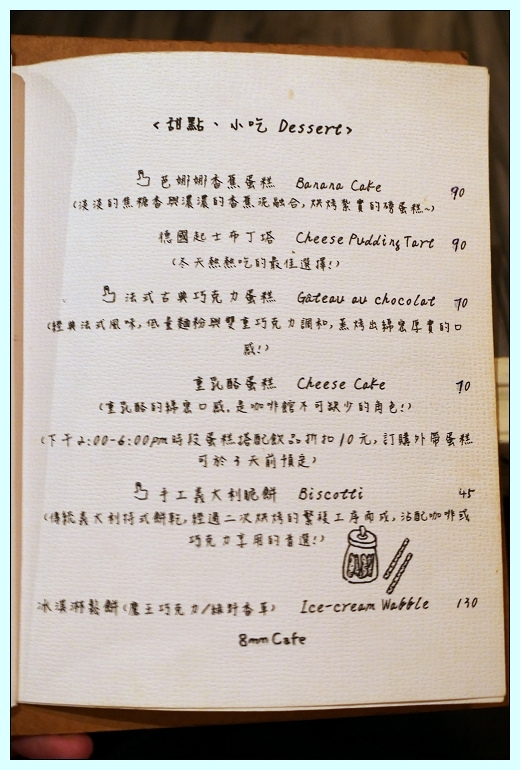 <甜點、小吃 Dessert>
芭娜娜香蕉蛋糕 Banana Cake 90
(淡淡的焦糖香與濃濃的香蕉泥融合,烘烤紮實的磅蛋糕~)
德國起士布丁塔 Cheese Pudding Tart 90
(冬天熱熱吃的最佳選擇!)
法式古典巧克力蛋糕 Gâteau au chocolat 70
(經典法式風味,低量麵粉與雙重巧克力調和,蒸烤出綿密厚實的口
感!)
重乳酪蛋糕 Cheese Cake 70
(重乳酪的綿密口感,是咖啡館不可缺少的角色!)
(下午2:00-6:00pm時段蛋糕搭配飲品折扣10元,訂購外帶蛋糕
可於3天前預定)
手工義大利脆餅 Biscotti 45
(傳統義大利特式餅乾,經過二次烘烤的繁複工序而成,沾配咖啡或
巧克力享用的首選!)
冰淇淋鬆餅(魔王巧克力/綠野香草) Ice-cream Wabble 130
8mm Cafe